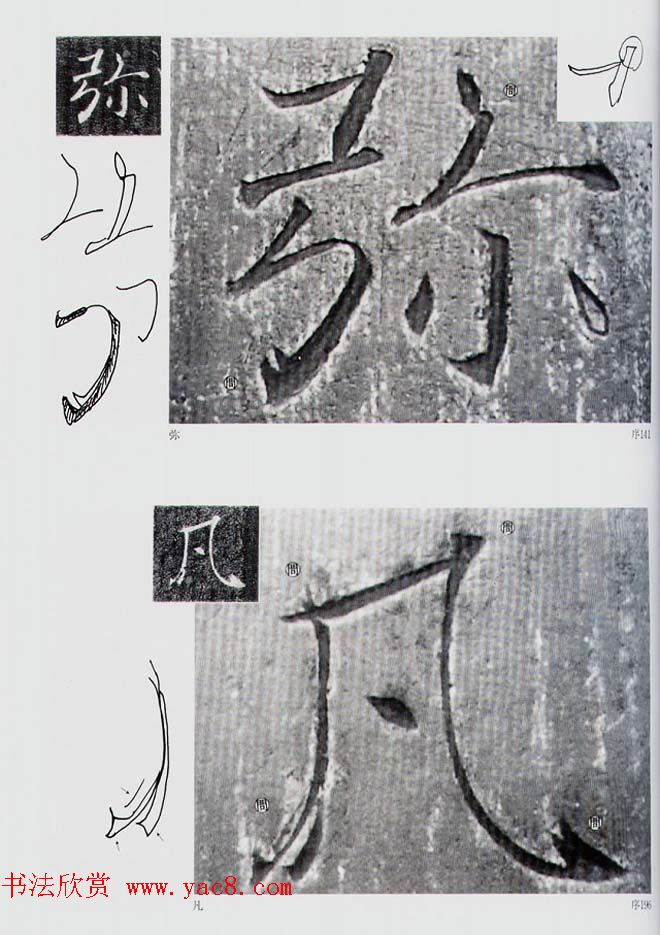 弥
弥
弥 序141
凡
凡
凡 序196
书法欣赏 www.yac8.com